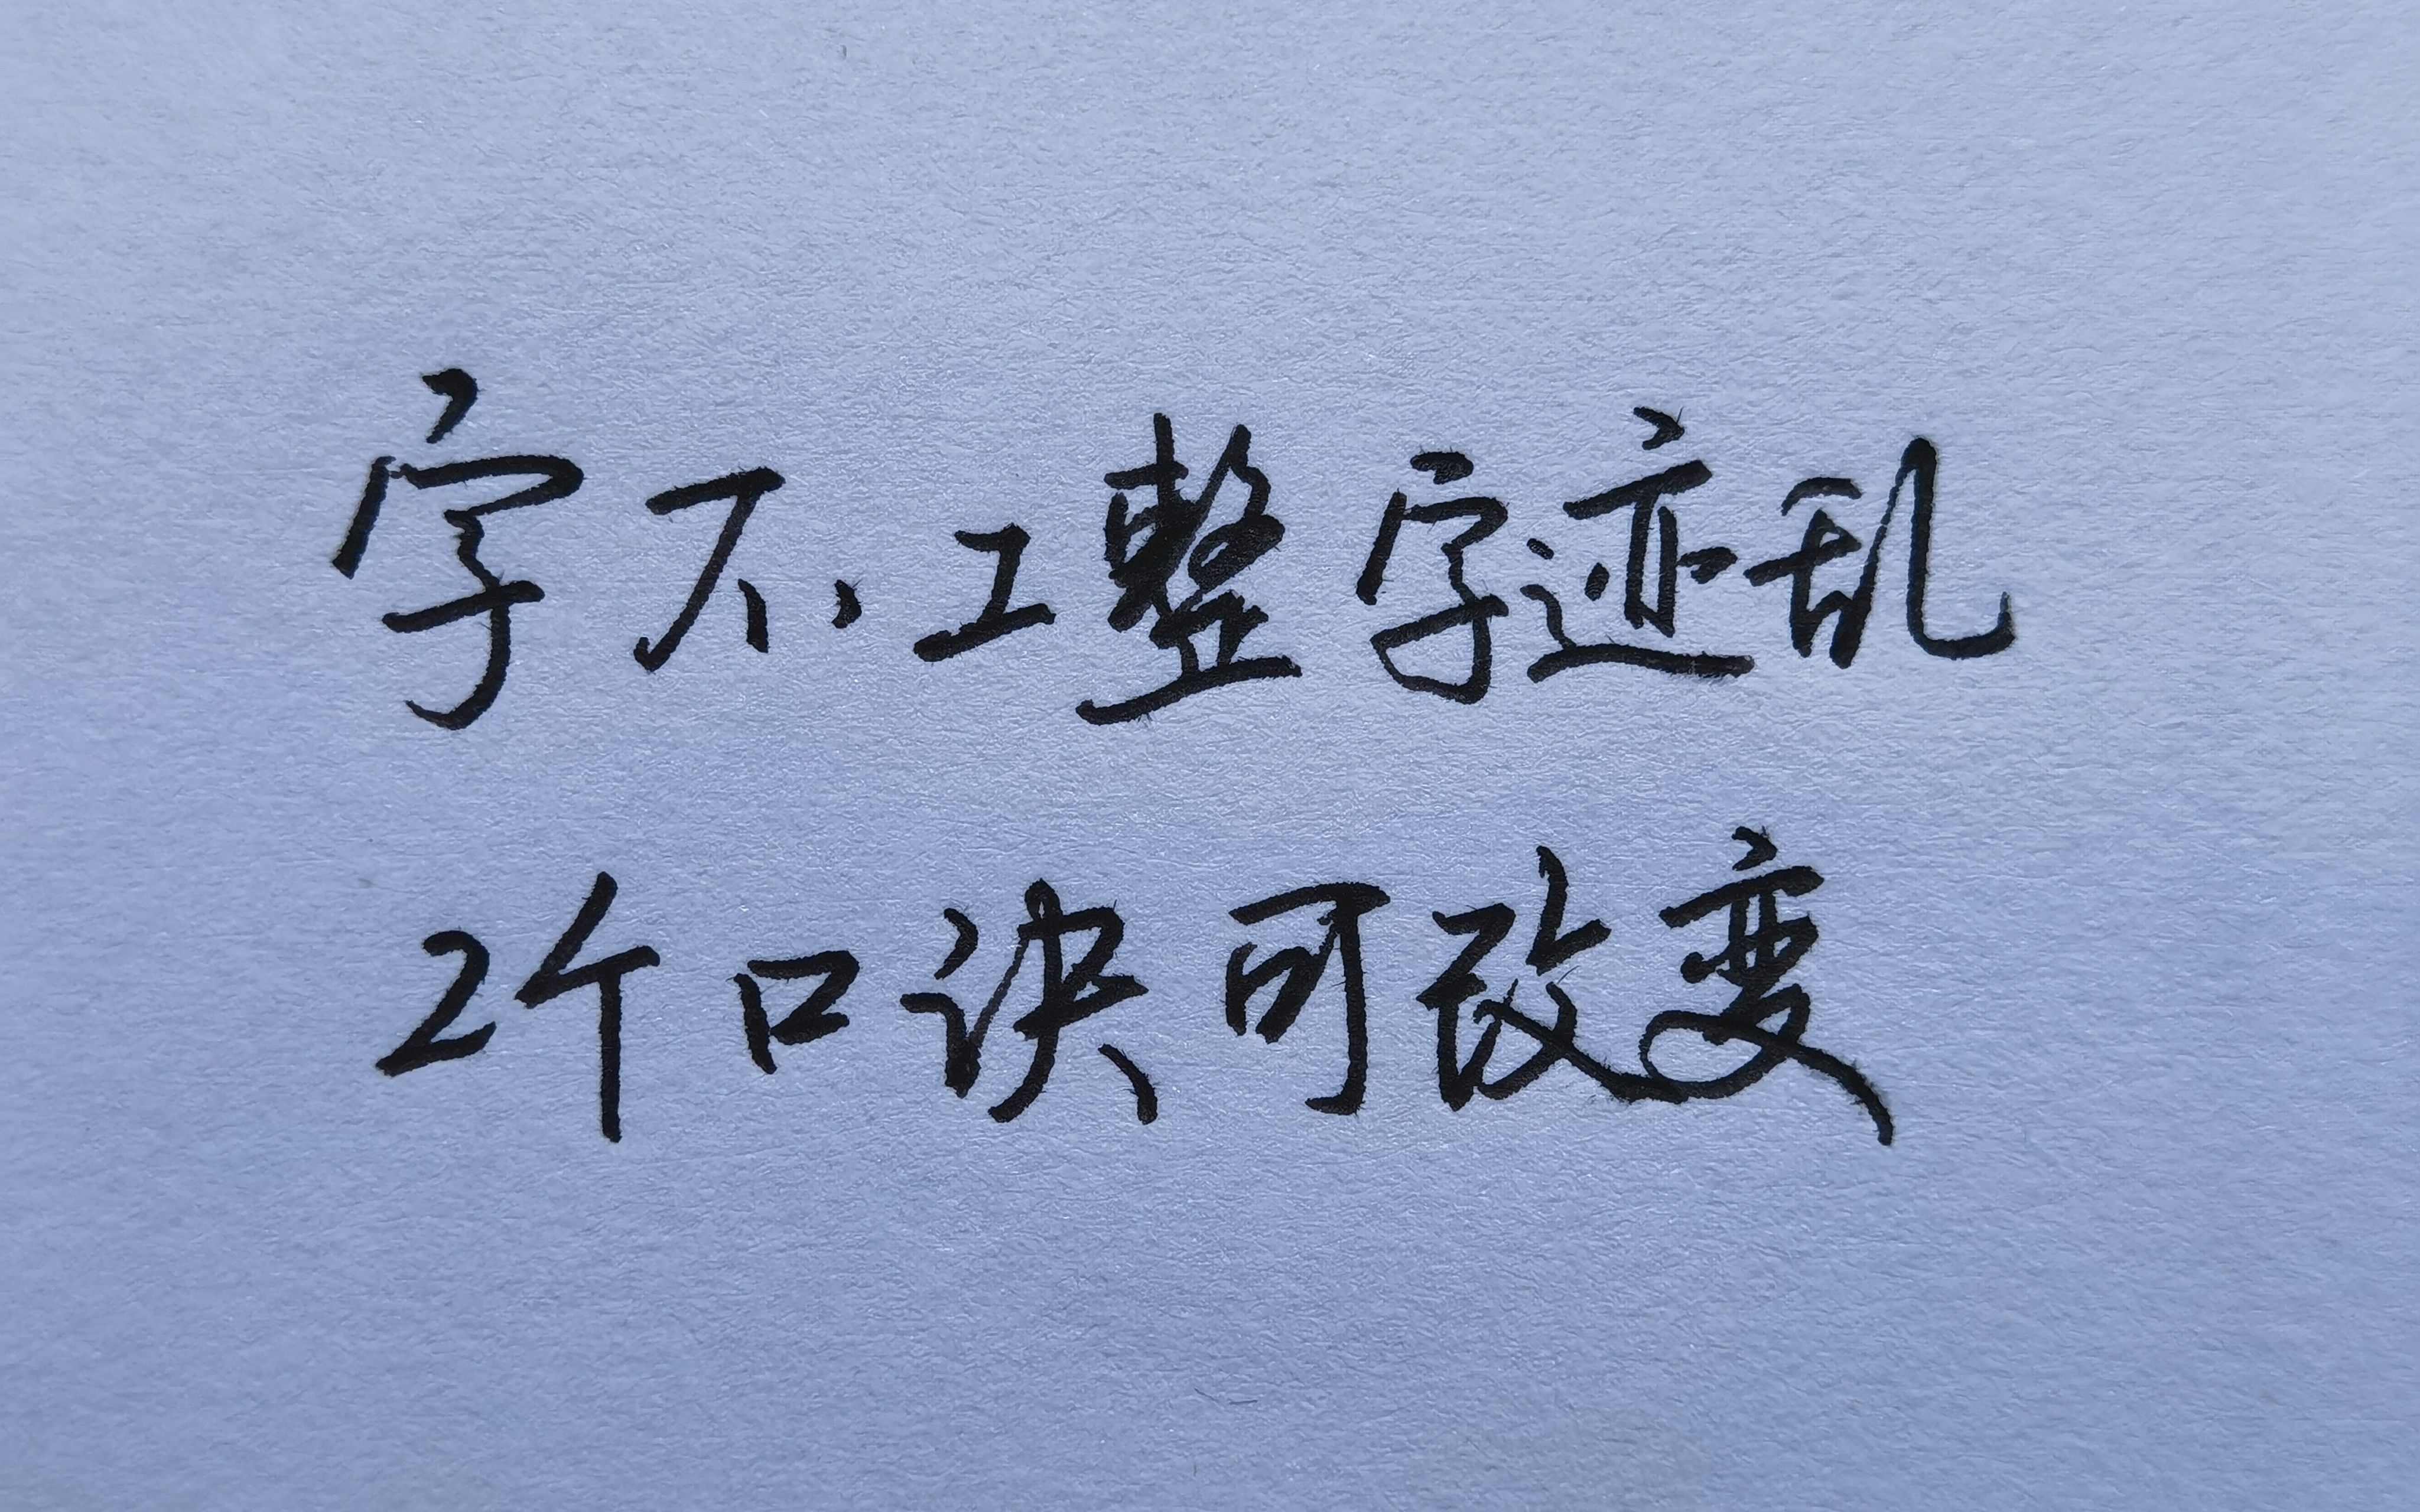 字不工整字迹乱
2个口诀可改变